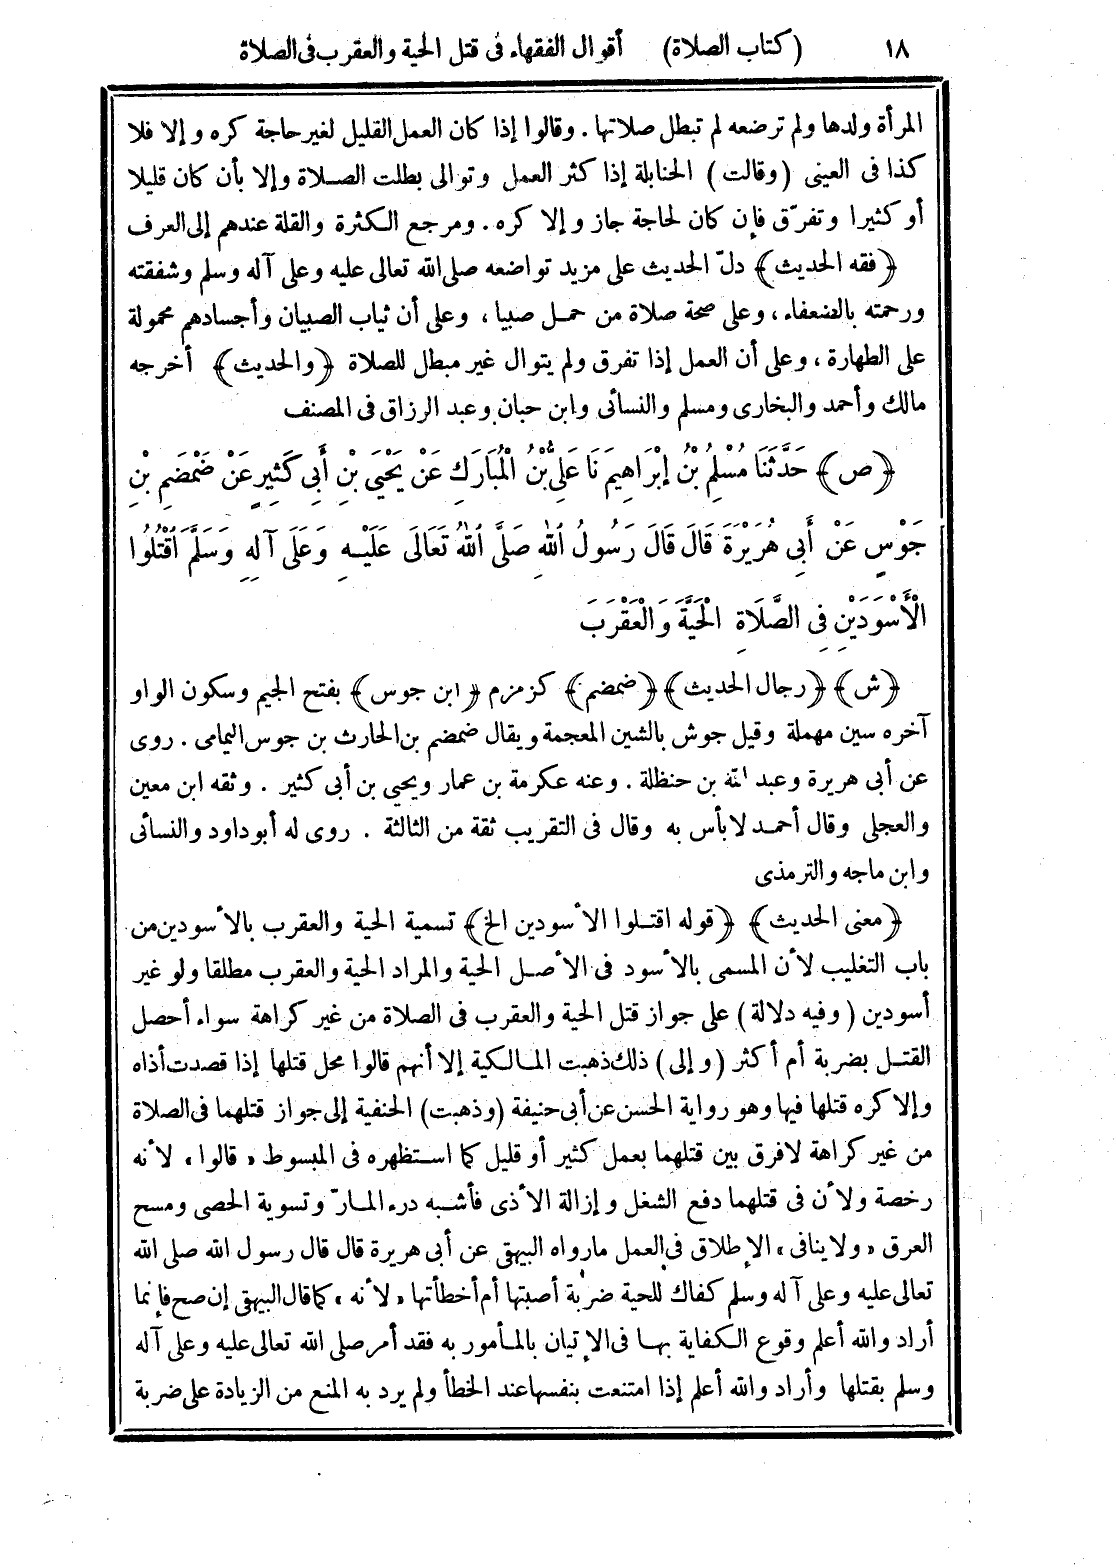 ١٨ (كتاب الصلاة) أقوال الفقهاء فى قتل الحية والعقرب فى الصلاة
المرأة ولدها ولم ترضعه لم تبطل صلاتها . وقالوا إذا كان العمل القليل لغير حاجة كره وإلا فلا
كذا فى العينى (وقالت) الحنابلة إذا كثر العمل وتوالى بطلت الصلاة وإلا بأن كان قليلا
أو كثيرا وتفرّق فإن كان لحاجة جاز وإلا كره . ومرجع الكثرة والقلة عندهم إلى العرف
﴿فقه الحديث﴾ دلّ الحديث على مزيد تواضعه صلى الله تعالى عليه وعلى آله وسلم وشفقته
ورحمته بالضعفاء ، وعلى صحة صلاة من حمل صبيا ، وعلى أن ثياب الصبيان وأجسادهم محمولة
على الطهارة ، وعلى أن العمل إذا تفرق ولم يتوال غير مبطل للصلاة ﴿والحديث﴾ أخرجه
مالك وأحمد والبخارى ومسلم والنسائى وابن حبان وعبد الرزاق فى المصنف
﴿ص﴾ حَدَّثَنَا مُسْلِمُ بْنُ إِبْرَاهِيمَ نَا عَلِىُّ بْنُ الْمُبَارَكِ عَنْ يَحْيَى بْنِ أَبِى كَثِيرٍ عَنْ ضَمْضَمِ بْنِ
جَوْسٍ عَنْ أَبِى هُرَيْرَةَ قَالَ قَالَ رَسُولُ اللهِ صَلَّى اللهُ تَعَالَى عَلَيْهِ وَعَلَى آلِهِ وَسَلَّمَ اقْتُلُوا
الْأَسْوَدَيْنِ فِى الصَّلَاةِ الْحَيَّةَ وَالْعَقْرَبَ
﴿ش﴾ ﴿رجال الحديث﴾ ﴿ضمضم﴾ كزمزم ﴿ابن جوس﴾ بفتح الجيم وسكون الواو
آخره سين مهملة وقيل جوش بالشين المعجمة ويقال ضمضم بن الحارث بن جوس اليمامى . روى
عن أبى هريرة وعبد الله بن حنظلة . وعنه عكرمة بن عمار ويحيى بن أبى كثير . وثقه ابن معين
والعجلى وقال أحمد لا بأس به وقال فى التقريب ثقة من الثالثة . روى له أبو داود والنسائى
وابن ماجه والترمذى
﴿معنى الحديث﴾ ﴿قوله اقتلوا الأسودين الخ﴾ تسمية الحية والعقرب بالأسودين من
باب التغليب لأن المسمى بالأسود فى الأصل الحية والمراد الحية والعقرب مطلقا ولو غير
أسودين (وفيه دلالة) على جواز قتل الحية والعقرب فى الصلاة من غير كراهة سواء أحصل
القتل بضربة أم أكثر (وإلى) ذلك ذهبت المالكية إلا أنهم قالوا محل قتلها إذا قصدت أذاه
وإلا كره قتلها فيها وهو رواية الحسن عن أبى حنيفة (وذهبت) الحنفية إلى جواز قتلهما فى الصلاة
من غير كراهة لا فرق بين قتلهما بعمل كثير أو قليل كما استظهره فى المبسوط «قالوا» لأنه
رخصة ولأن فى قتلهما دفع الشغل وإزالة الأذى فأشبه درء المارّ وتسوية الحصى ومسح
العرق «ولا ينافى» الإطلاق فى العمل ما رواه البيهقى عن أبى هريرة قال قال رسول الله صلى الله
تعالى عليه وعلى آله وسلم كفاك للحية ضربة أصبتها أم أخطأتها «لأنه» كما قال البيهقى إن صح فإنما
أراد والله أعلم وقوع الكفاية بها فى الإتيان بالمأمور به فقد أمر صلى الله تعالى عليه وعلى آله
وسلم بقتلها وأراد والله أعلم إذا امتنعت بنفسها عند الخطأ ولم يرد به المنع من الزيادة على ضربة